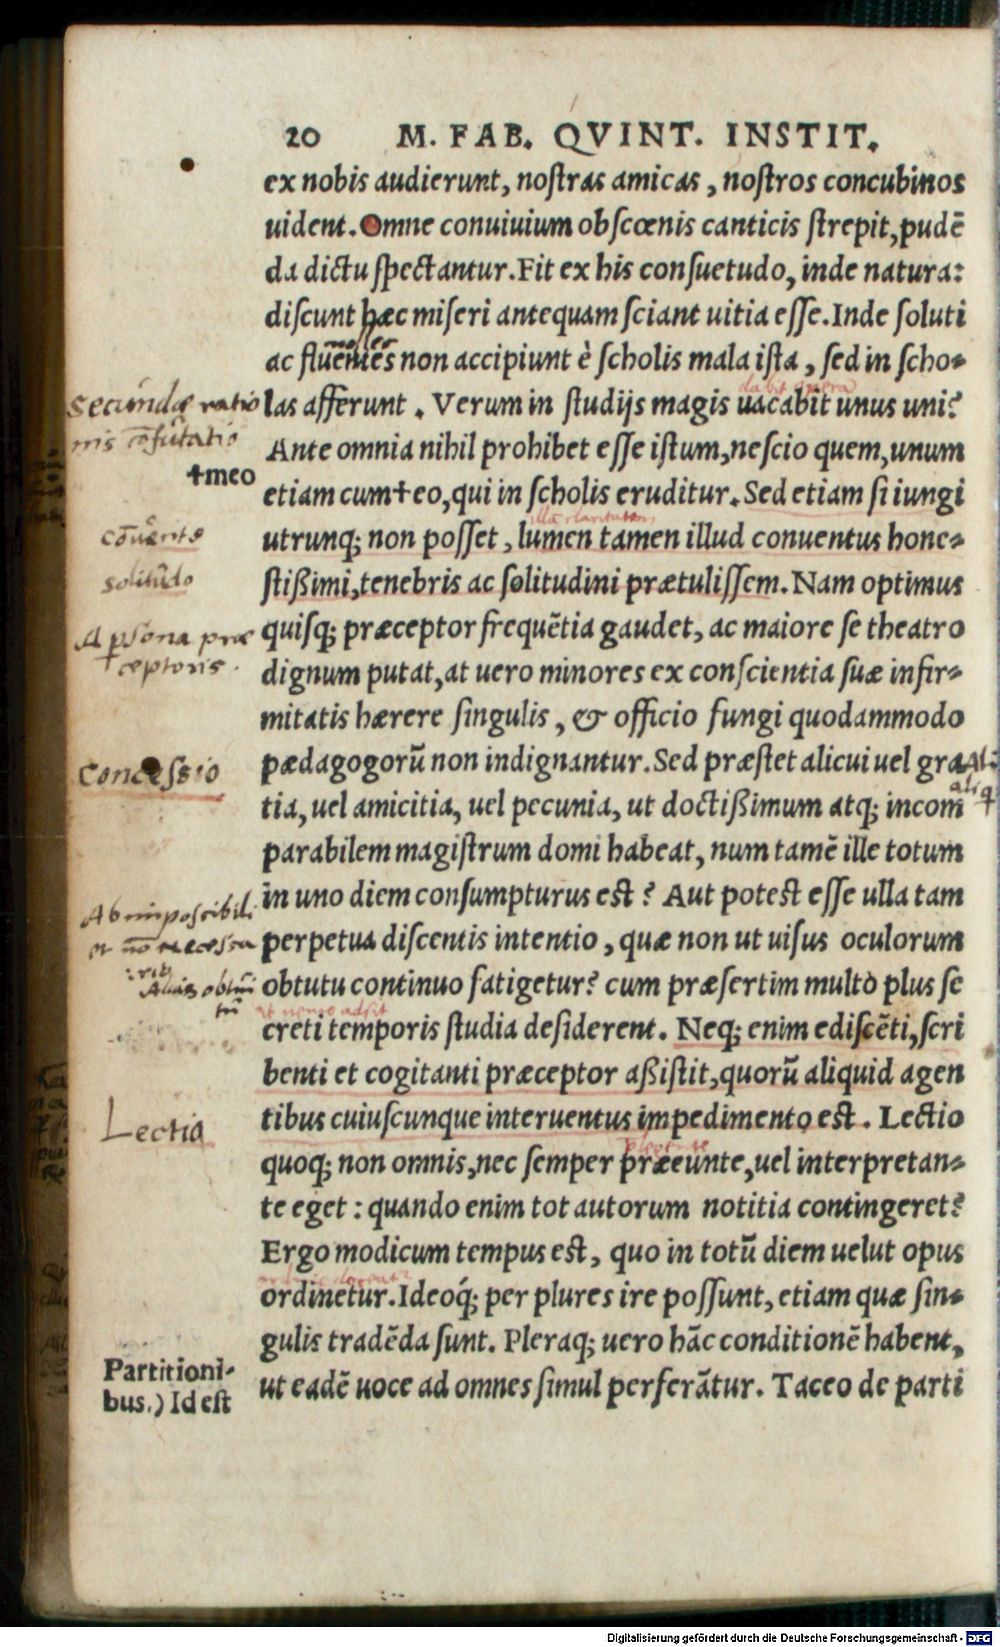 20 M. FAB. QVINT. INSTIT.
ex nobis audierunt, nostras amicas, nostros concubinos
uident. Omne conuiuium obscœnis canticis strepit, pudē
da dictu spectantur. Fit ex his consuetudo, inde natura:
discunt hæc miseri antequam sciant uitia esse. Inde soluti
ac fluentes non accipiunt è scholis mala ista, sed in scho-
las afferunt. Verum in studijs magis uacabit unus uni?
Ante omnia nihil prohibet esse istum, nescio quem, unum
etiam cum † eo, qui in scholis eruditur. Sed etiam si iungi
utrunq; non posset, lumen tamen illud conuentus hone-
stißimi, tenebris ac solitudini prætulissem. Nam optimus
quisq; præceptor frequētia gaudet, ac maiore se theatro
dignum putat, at uero minores ex conscientia suæ infir-
mitatis hærere singulis, & officio fungi quodammodo
pædagogorū non indignantur. Sed præstet alicui uel gra
tia, uel amicitia, uel pecunia, ut doctißimum atq; incom
parabilem magistrum domi habeat, num tamē ille totum
in uno diem consumpturus est? Aut potest esse ulla tam
perpetua discentis intentio, quæ non ut uisus oculorum
obtutu continuo fatigetur? cum præsertim multò plus se
creti temporis studia desiderent. Neq; enim ediscēti, scri
benti et cogitanti præceptor aßistit, quorū aliquid agen
tibus cuiuscunque interuentus impedimento est. Lectio
quoq; non omnis, nec semper præeunte, uel interpretan-
te eget: quando enim tot autorum notitia contingeret?
Ergo modicum tempus est, quo in totū diem uelut opus
ordinetur. Ideóq; per plures ire possunt, etiam quæ sin-
gulis tradēda sunt. Pleraq; uero hāc conditionē habent,
ut eadē uoce ad omnes simul perferātur. Taceo de parti
secundæ ratio
nis cōfutatio
†meo
solitūdo
A psona præ
ceptoris.
Concessio
Ab impossibili
Lectio
dabit opera
Partitioni-
bus.) Id est
Digitalisierung gefördert durch die Deutsche Forschungsgemeinschaft - DFG